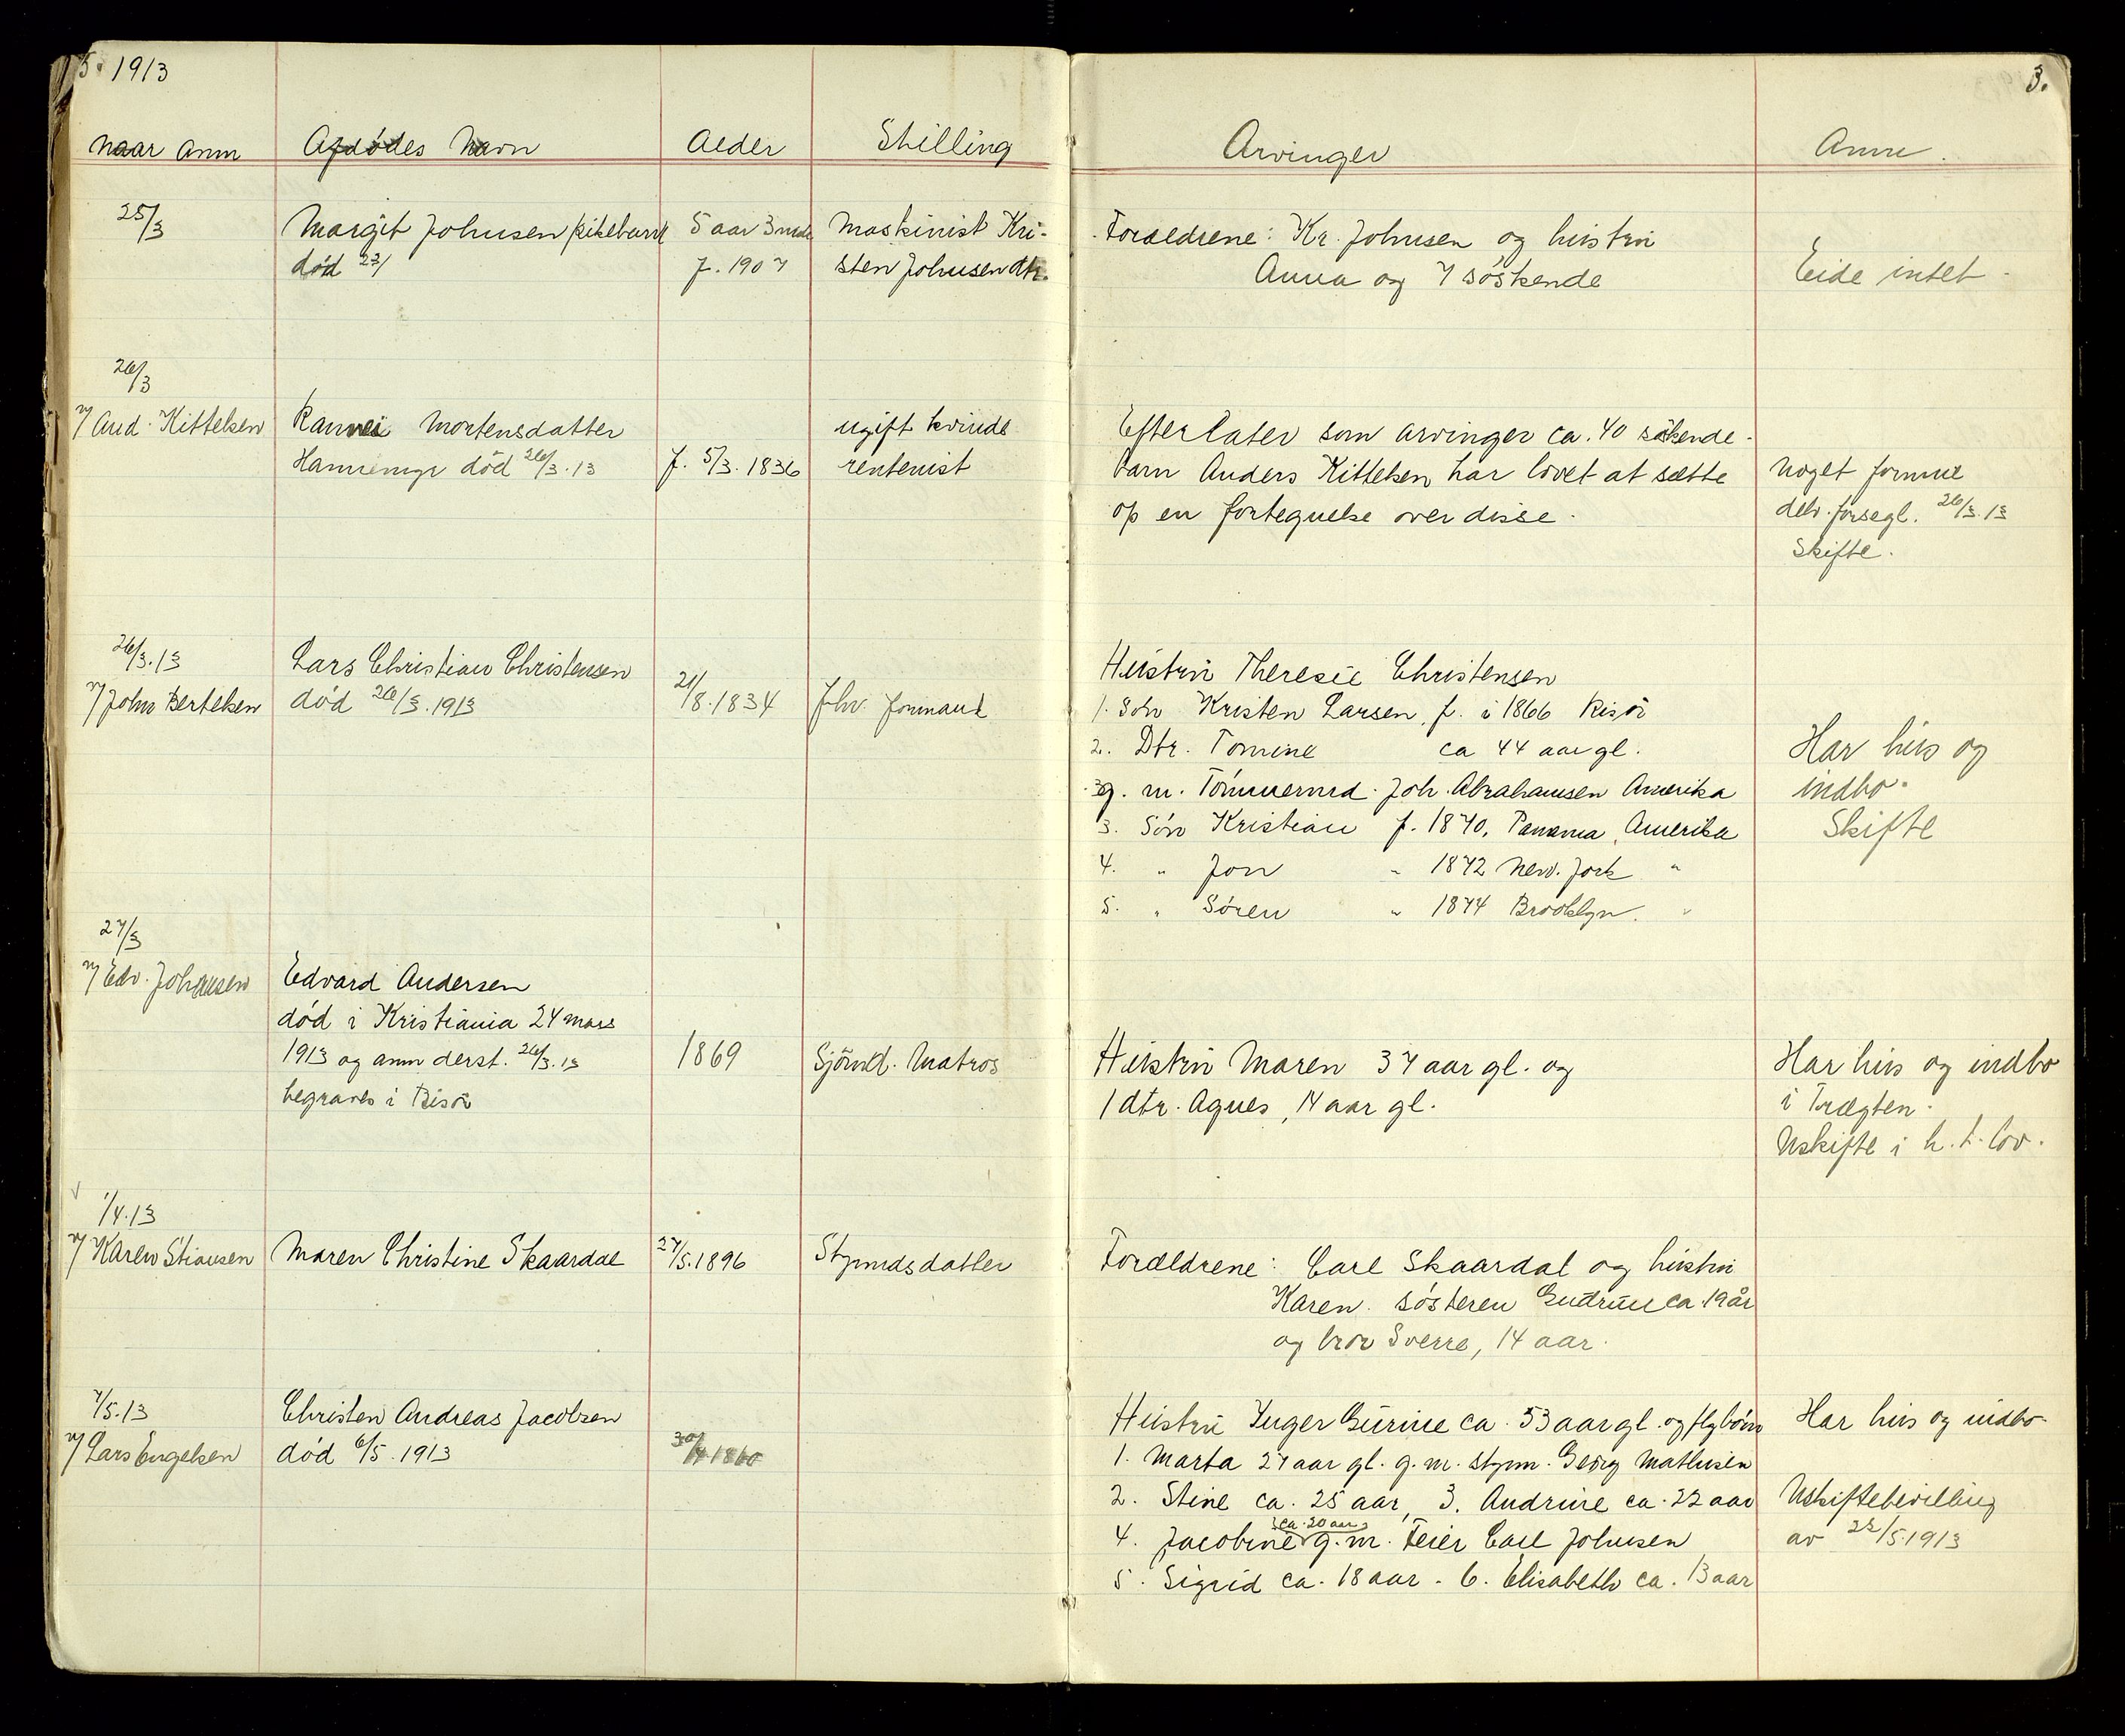 1913
3.
Naar anm Afdødes Navn Alder Stilling Arvinger Anm.
25/3 Margit Johnsen pikebarn 5 aar 3 mdr Maskinist Kri-
død 23/ f. 1907 sten Johnsen dtr.
Forældrene: Kr. Johnsen og hustru
Anna og 7 søskende
Eide intet
26/3
v/ And. Kittelsen Rannei Mortensdatter ugift kvinde
Hammemyr død 26/3.13 f. 5/3.1836 rentenist
Efterlater som arvinger ca. 40 søskende-
barn Anders Kittelsen har lovet at sætte
op en fortegnelse over disse.
Noget formue
delv. forsegl. 26/3.13
Skifte.
26/3.13 Lars Christian Christensen
v/ John Bertelsen død 26/3.1913 21/8.1834 fhv. formand
Hustru Theresie Christensen
1. Søn Kristen Larsen, f. i 1866 Risør
2. Dtr. Tomine ca 44 aar gl.
g. m. Tømmermd. Joh. Abrahamsen Amerika
3. Søn Kristian f. 1870, Panama, Amerika
4. " Jon " 1872 New. Jork "
5. " Søren " 1874 Brooklyn. "
Har hus og
indbo.
Skifte
27/3
v/ Edv. Johansen Edvard Andersen
død i Kristiania 24 mars
1913 og anm derst. 26/3.13 1869 Sjømd. Matros
begraves i Risør
Hustru Maren 37 aar gl. og
1 dtr. Agnes, 14 aar gl.
Har hus og indbo
i Trægten.
Uskifte i h. t. lov.
1/4.13
v/ Karen Stiansen Maren Christine Skaardal 27/5.1896 Styrmdsdatter
Forældrene: Carl Skaardal og hustru
Karen. søsteren Gudrun ca. 19 år
og bror Sverre, 14 aar.
7/5.13 Christen Andreas Jacobsen
v/ Lars Engelsen død 6/5.1913 30/4.1860
Hustru Inger Gurine ca. 53 aar gl. og flg børn
1. Marta 27 aar gl. g. m. styrm. Georg Mathisen
2. Stine ca. 25 aar, 3. Andrine ca. 22 aar
ca. 20 aar
4. Jacobine g. m. Feier Carl Johnsen
5. Sigrid ca. 18 aar. 6. Elisabeth ca. 13 aar
Har hus og indbo.
Uskiftebevilling
av 22/5.1913